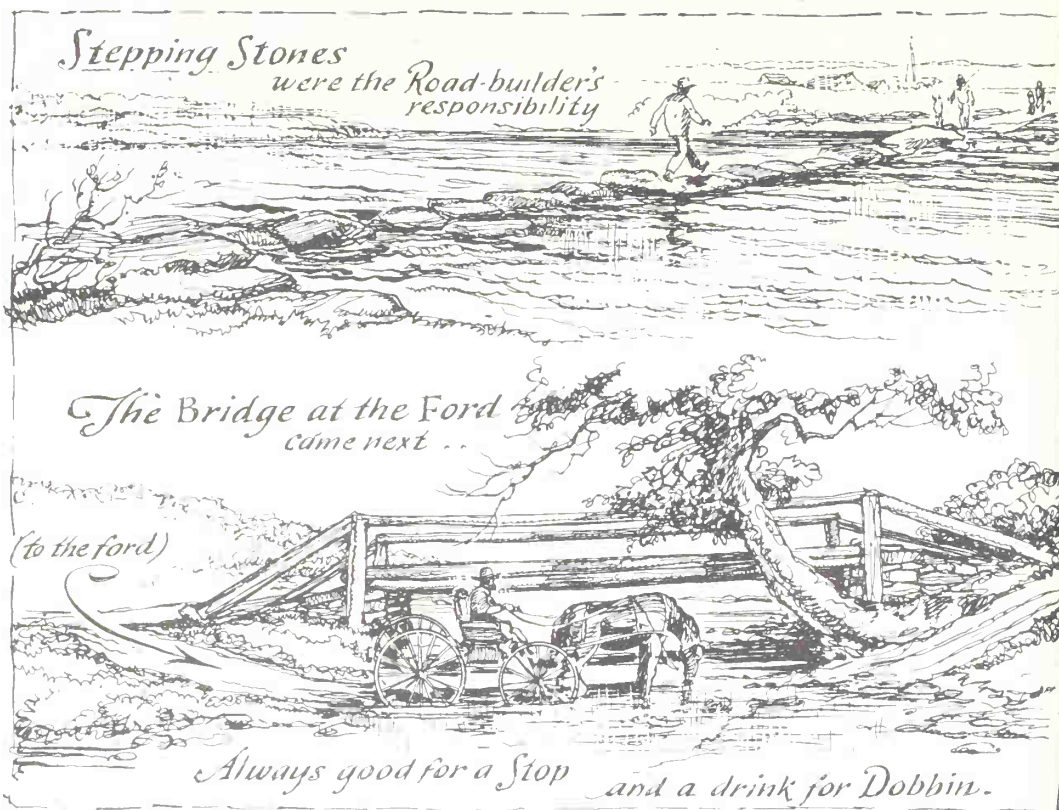 Stepping Stones
were the Road-builder's
responsibility
The Bridge at the Ford
came next . .
(to the ford)
Always good for a Stop
and a drink for Dobbin.